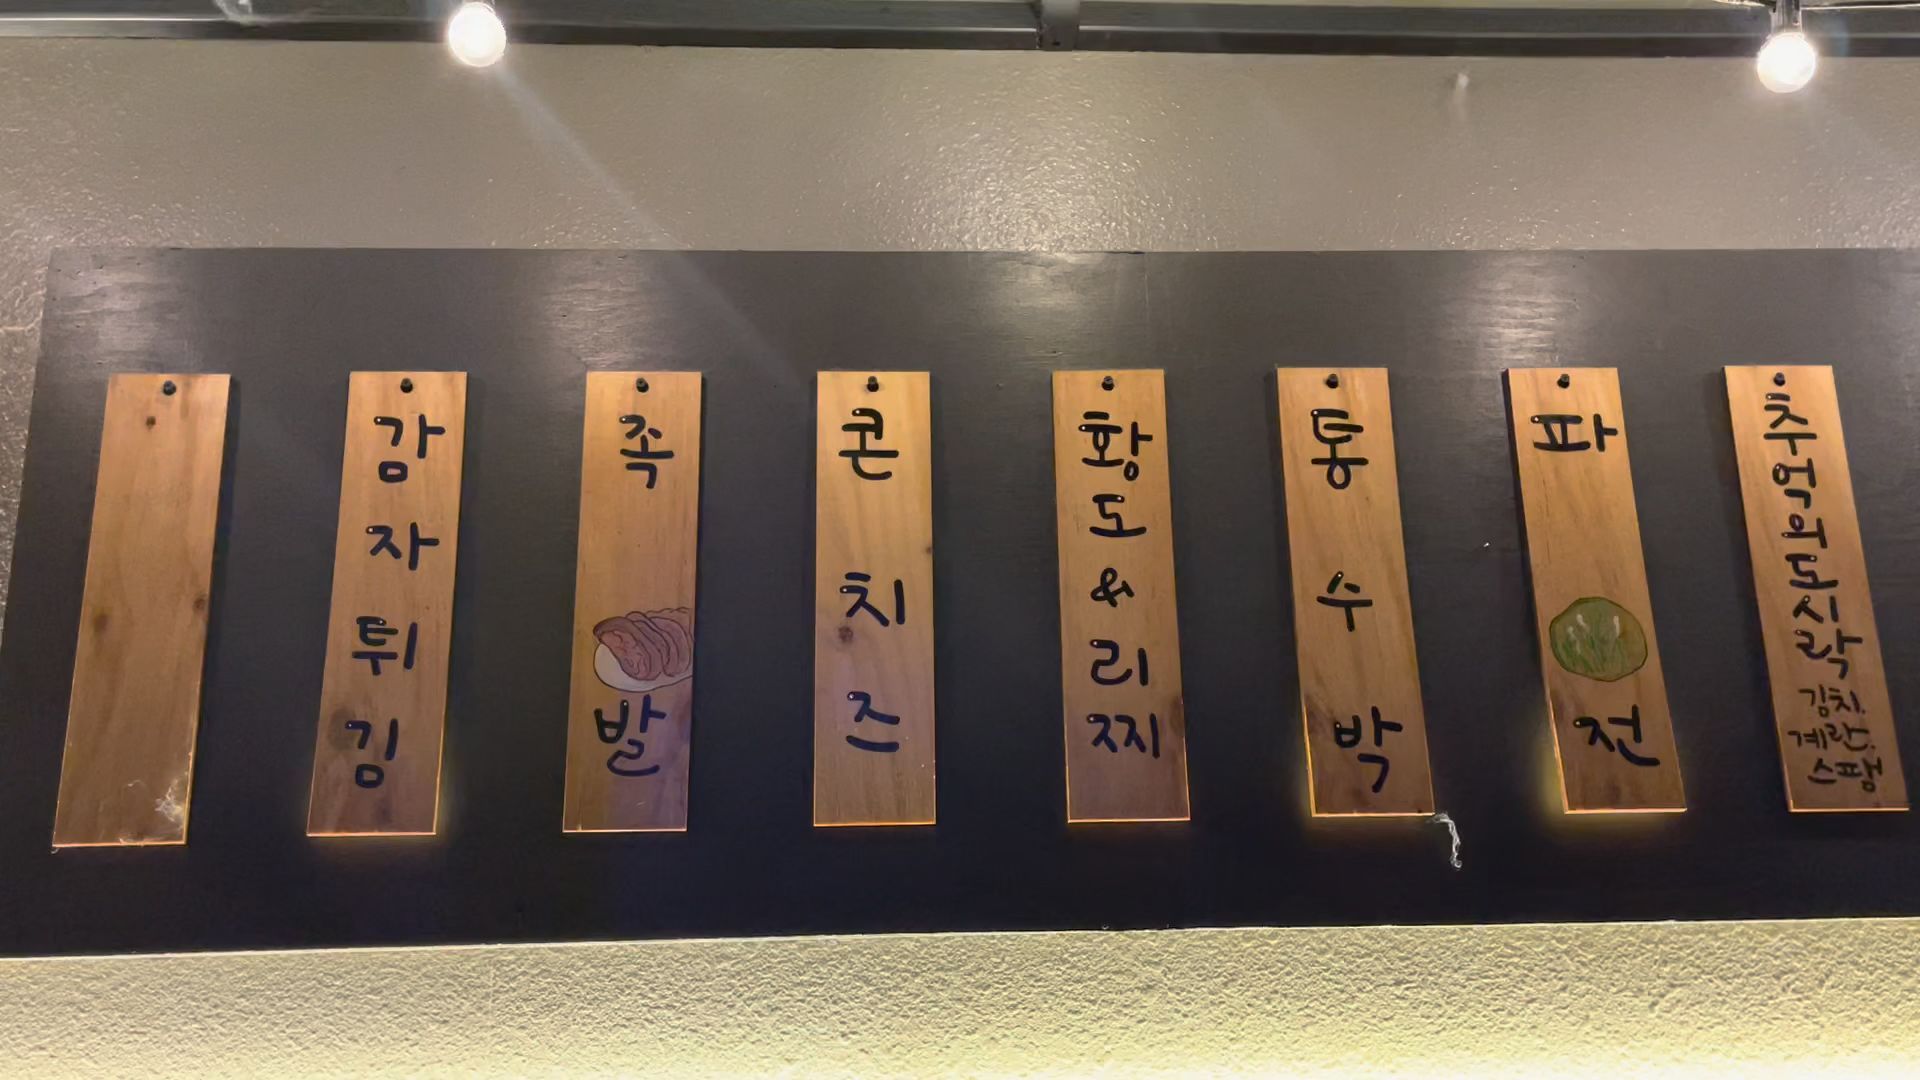 감자튀김
족발
콘치즈
황도&리찌
통수박
파전
추억의도시락
김치.
계란.
스팸